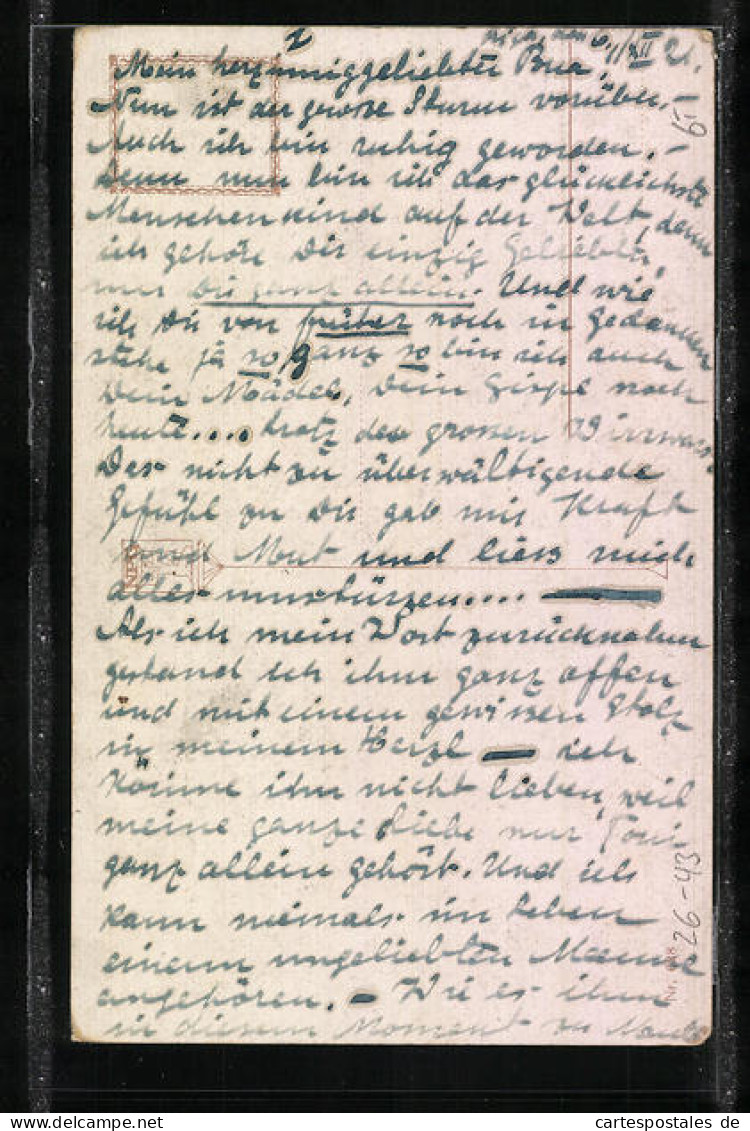 1
Riga, den 6./XII 21.
Mein herzinniggeliebter Bua,
Nun ist der grosse Sturm vorüber. –
Auch ich bin ruhig geworden. –
denn nun bin ich das glücklichste
Menschenkind auf der Welt, denn
ich gehöre Dir einzig Geliebter,
nur Dir ganz allein. Und wie
ich Du von früher noch in Gedanken
stehe ja so ganz so bin ich auch
Dein Mädel, Dein Gispl noch
heute.... trotz des grossen Wirrwarr.
Das nicht zu überwältigende
Gefühl zu Dir gab mir Kraft
und Mut und liess mich
alles umstürzen....
Als ich mein Wort zurücknahm
gestand ich ihm ganz offen
und mit einem gewissen Stolz
in meinem Herzl – ich
könne ihn nicht lieben, weil
meine ganze Liebe nur Toni
ganz allein gehört. Und ich
kann niemals im Leben
einem ungeliebten Manne
angehören. – Wie es ihm
in diesem Moment zu Mute
6.-
26-43
Nr.
cartespostales de